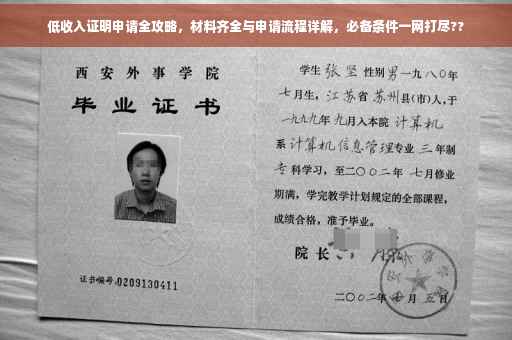 低收入证明申请全攻略，材料齐全与申请流程详解，必备条件一网打尽??
西安外事学院
毕业证书
证书编号:0209130411
学生张坚性别男一九八〇年
七月生，江苏省苏州县(市)人，于
一九九九年九月入本院计算机
系计算机信息管理专业三年制
专科学习，至二〇〇二年七月修业
期满，学完教学计划规定的全部课程，
成绩合格，准予毕业。
院长
二〇〇二年 月五日